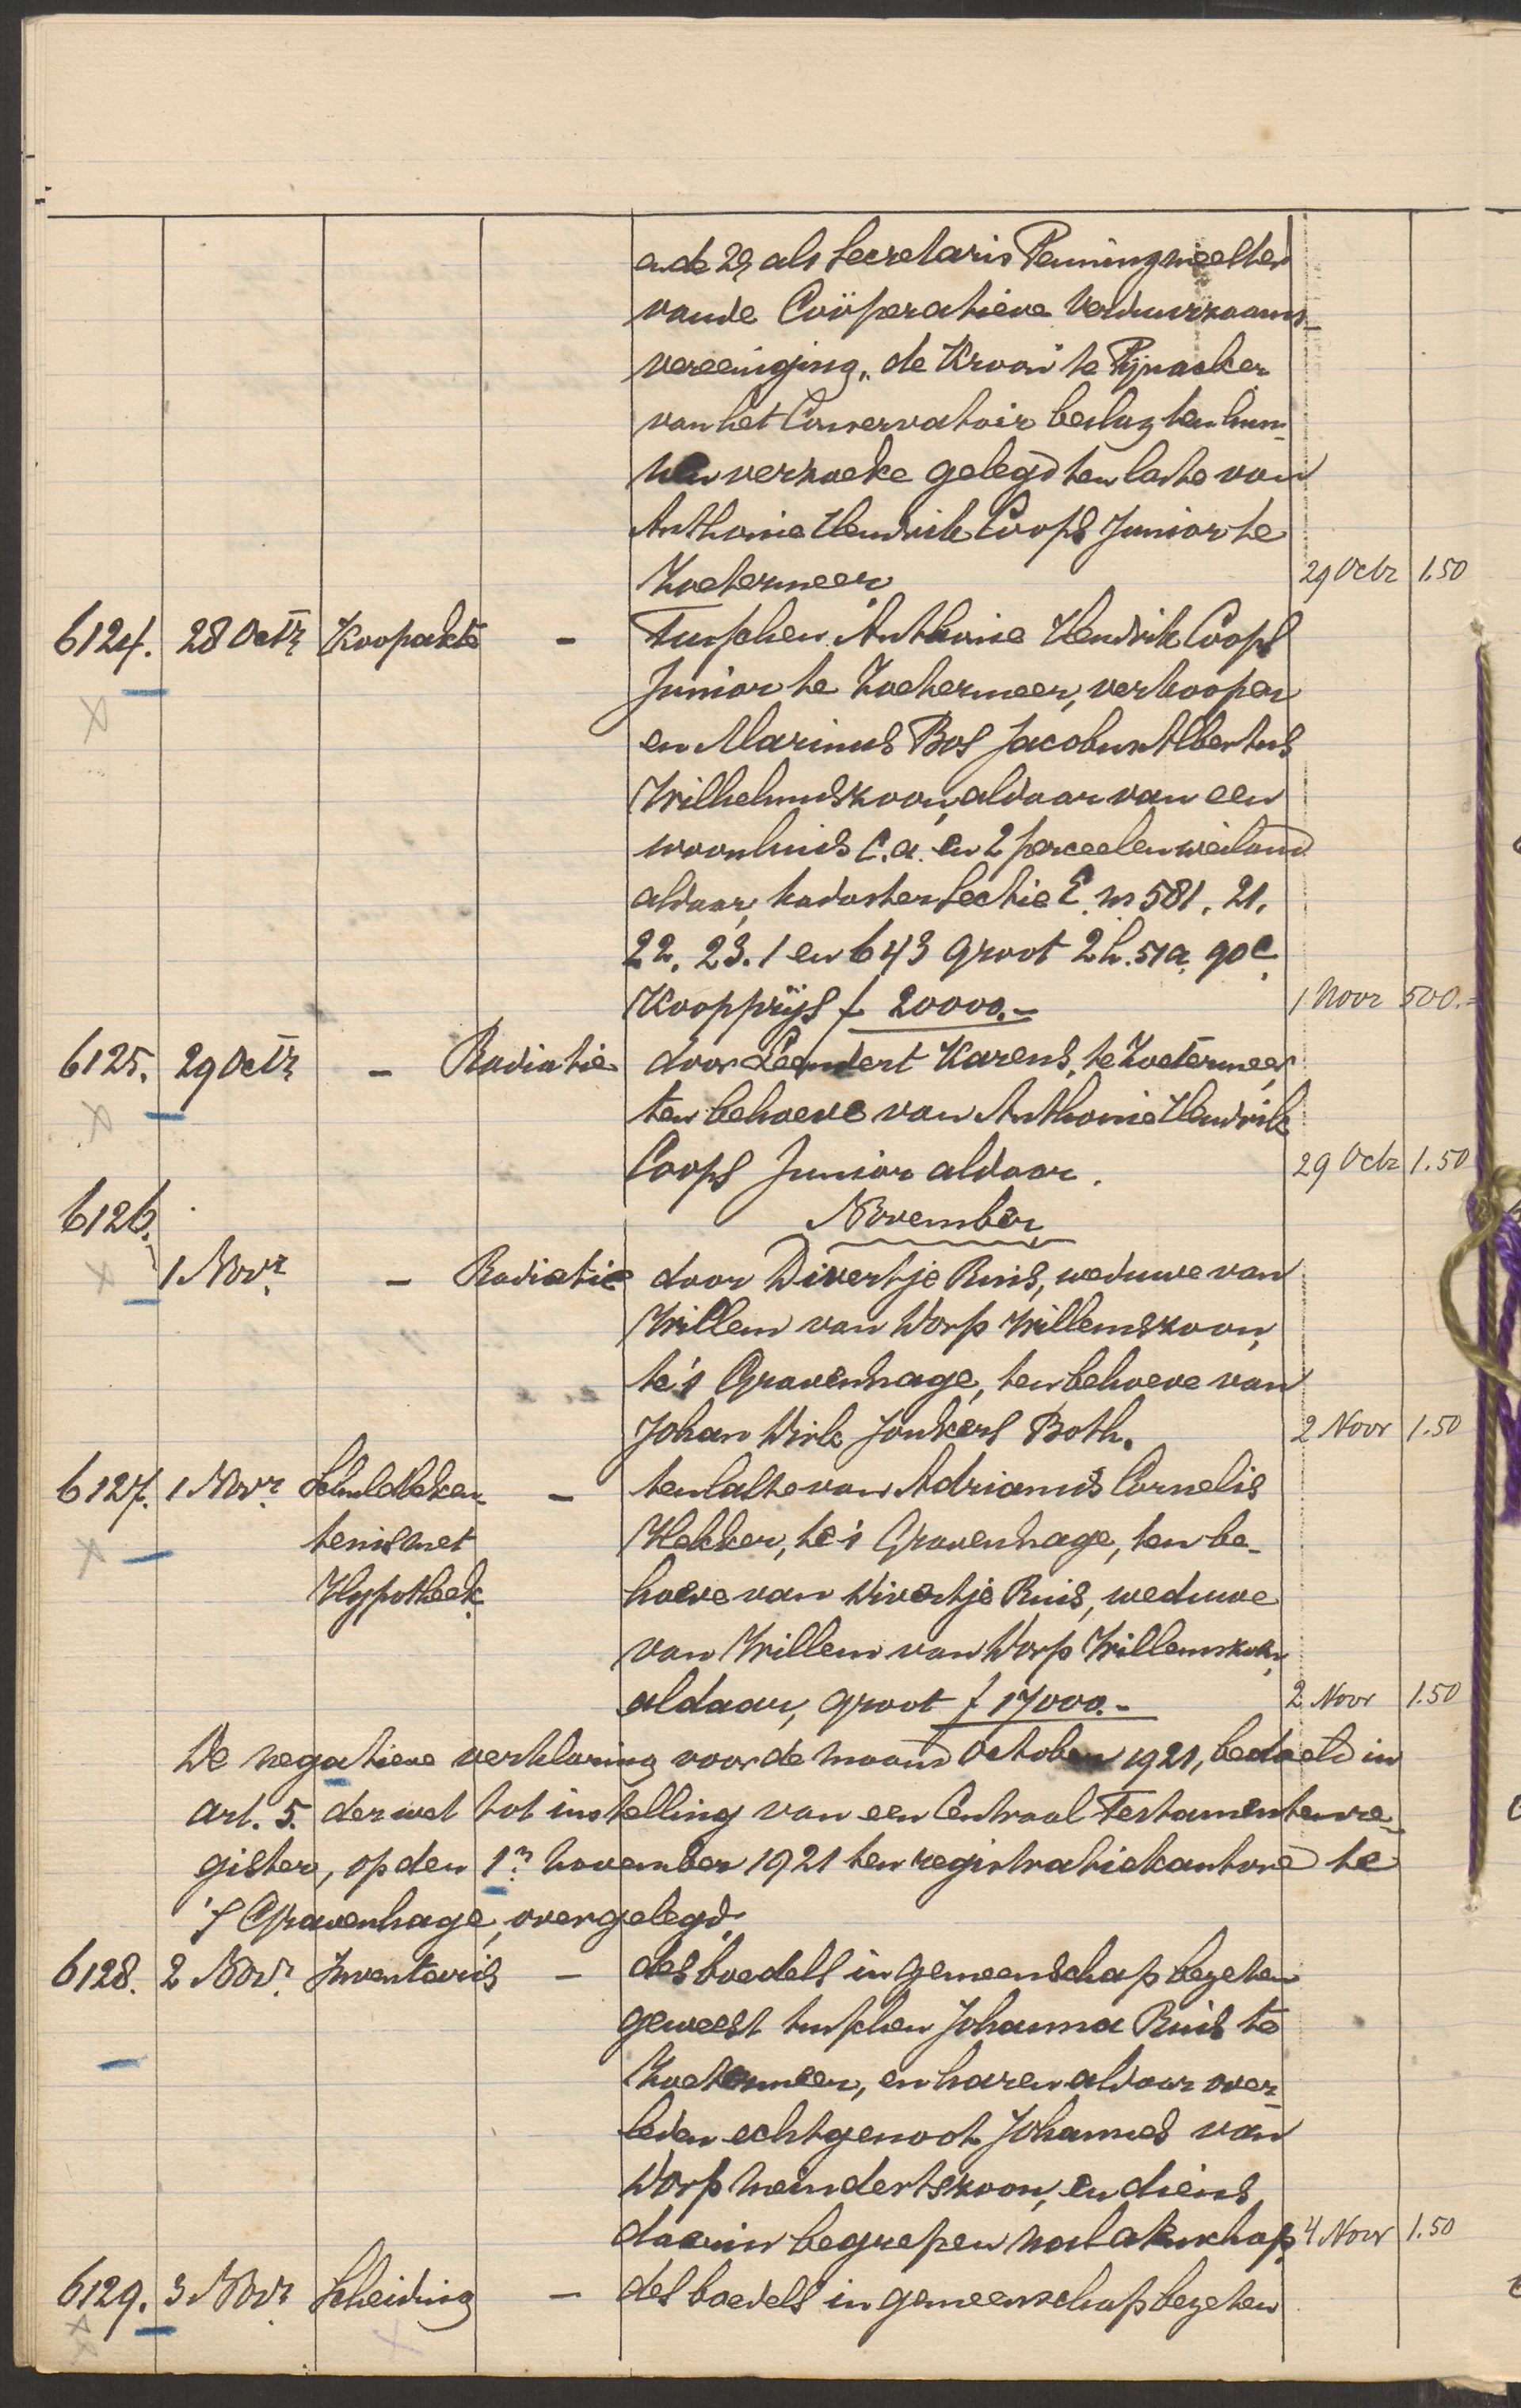 en de 2e als Secretaris Penningmeester
van de Coöperatieve Verduurzaams-
vereeniging "de Kroon" te Pijnacker
van het Conservatoir beslag ten hun-
nen verzoeke gelegd ten laste van
Anthonie Hendrik Coops Junior te
Zoetermeer 29 Octr 1.50
6124. 28 Octr Koopakte - Tusschen Anthonie Hendrik Coops
Junior te Zoetermeer, verkooper
en Marinus Bos Jacobus Albertus
Wilhelmuszoon, aldaar van een
woonhuis c.a. en 2 perceelen weiland
aldaar, kadaster Sectie E. nrs 581, 21,
22, 23. 1 en 643 groot 2 h. 51 a. 90 c.
Koopprijs f 20000.- 1 Novr 500.=
6125. 29 Octr - Radiatie door Leendert Karens, te Zoetermeer,
ten behoeve van Anthonie Hendrik
Coops Junior aldaar. 29 Octr 1.50
6126. November
1 Novr. - Radiatie door Divertje Ruis, weduwe van
Willem van Dorp Willemszoon,
te 's Gravenhage, ten behoeve van
Johan Dirk Jonkers Both. 2 Novr 1.50
6127. 1 Novr. Schuldbeken- - ten laste van Adrianus Cornelis
tenis met Hekker, te 's Gravenhage, ten be-
Hypotheek. hoeve van Divertje Ruis, weduwe
van Willem van Dorp Willemszoon,
aldaar, groot f 17000.- 2 Novr 1.50
De negatieve verklaring voor de maand October 1921, bedoeld in
art. 5. der wet tot instelling van een Centraal Testamentenre-
gister, op den 1n november 1921 ten registratiekantore te
's Gravenhage, overgelegd.
6128. 2 Novr. Inventaris - des boedels in gemeenschap bezeten
geweest tusschen Johanna Ruis te
Zoetermeer, en haren aldaar over-
leden echtgenoot Johannes van
Dorp Meindertszoon, en diens
daarin begrepen nalatenschap. 4 Novr 1.50
6129. 3 Novr Scheiding - des boedels in gemeenschap bezeten